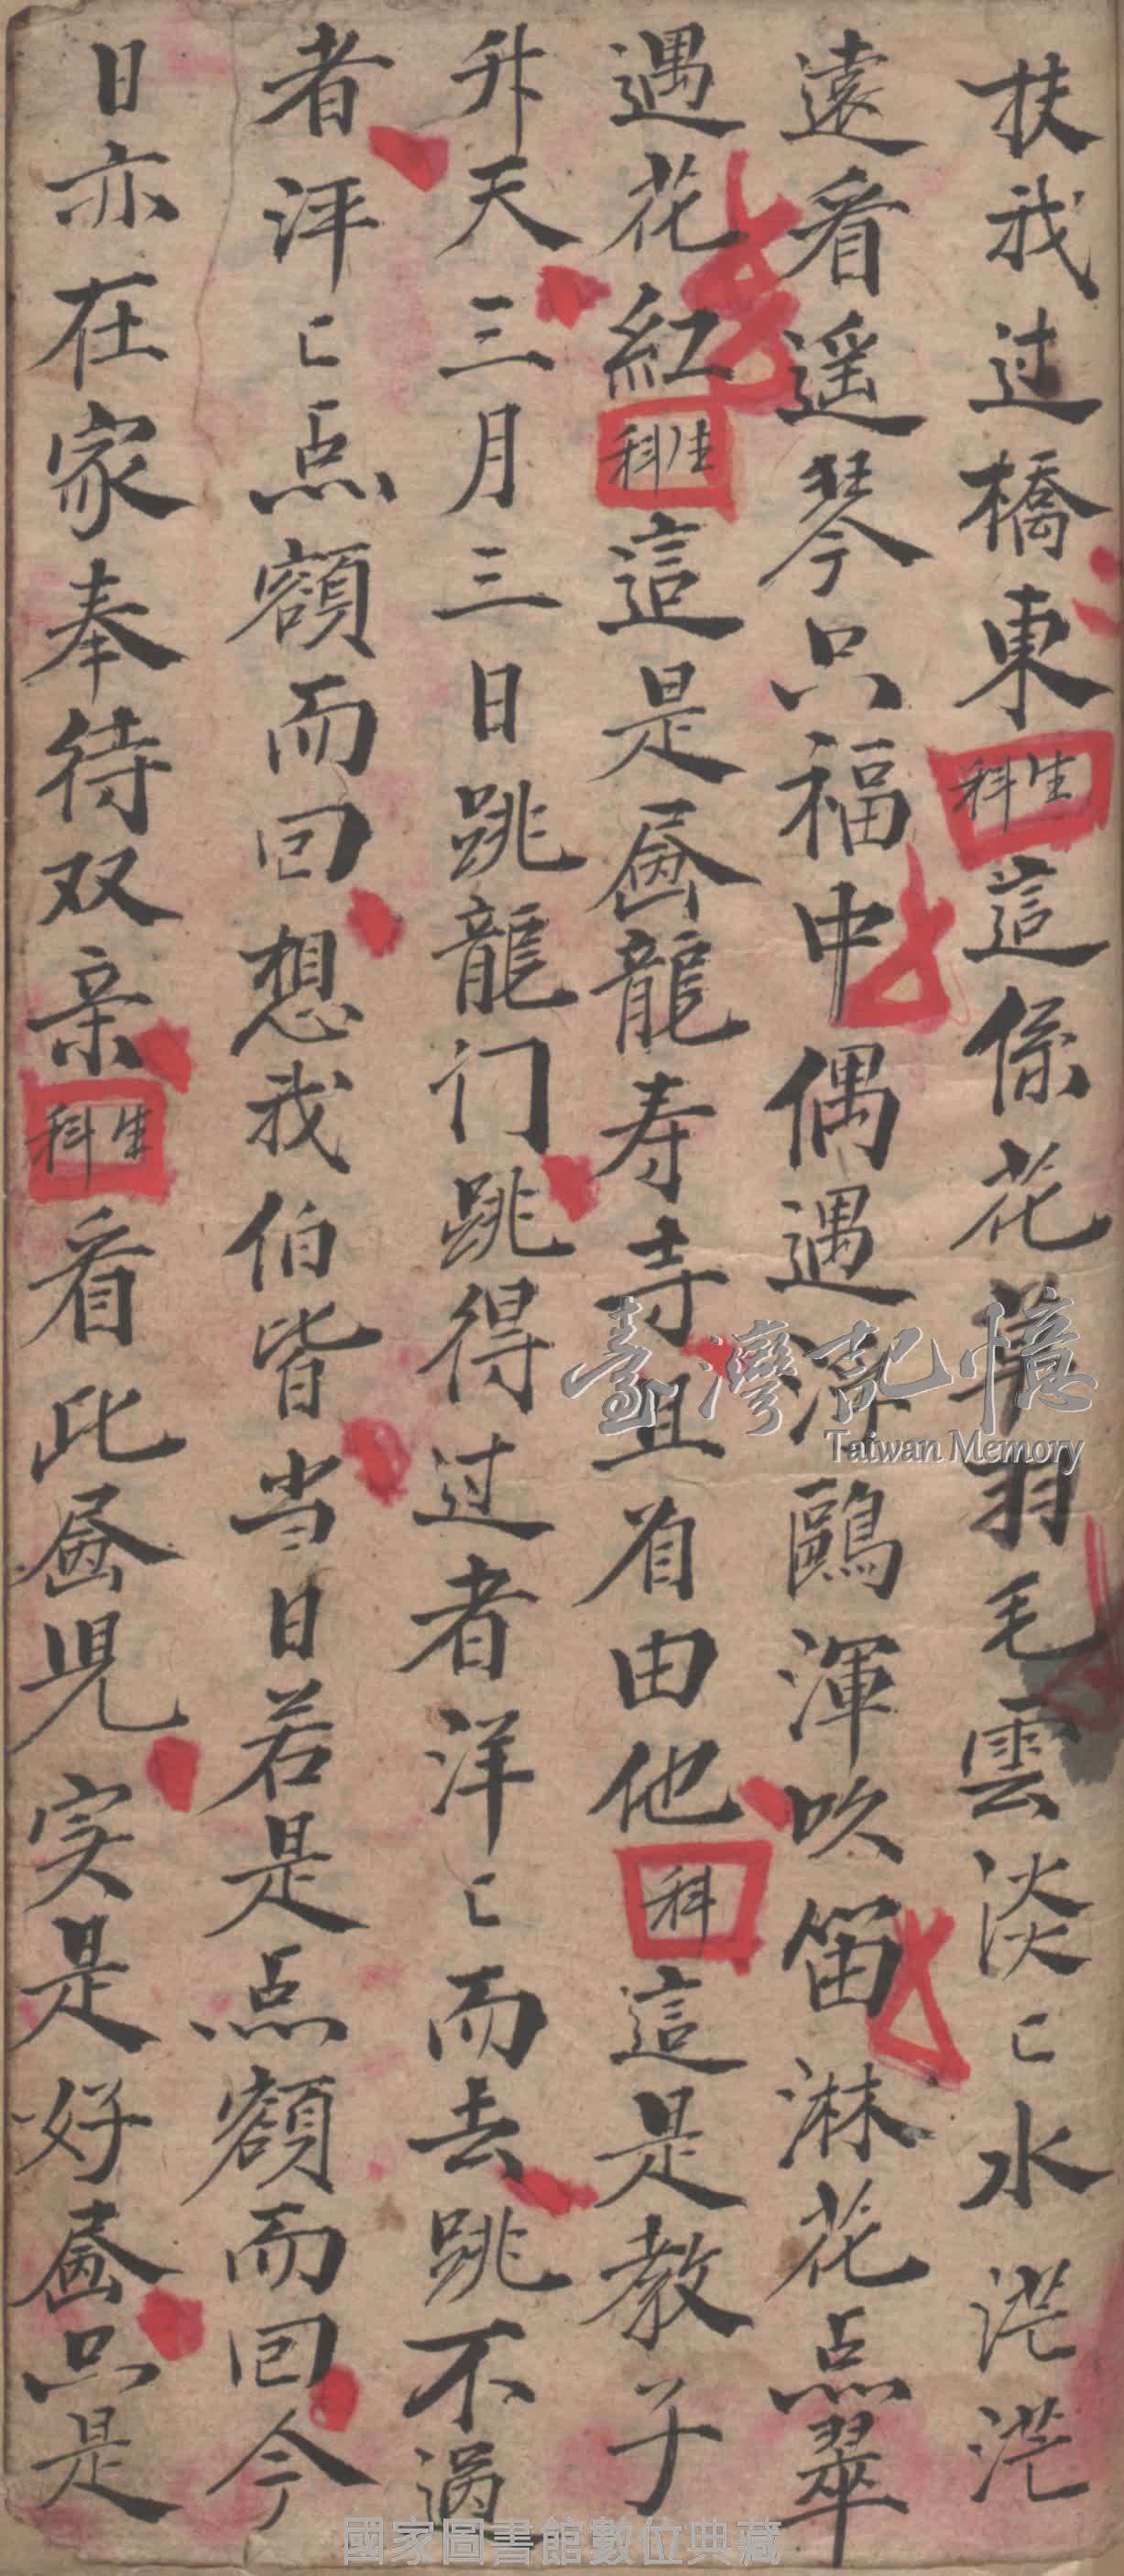 扶我过橋東生科這係花草羽毛雲淡匕水茫茫
遠看遥琴只福中偶遇浮鷗渾吹笛淋花点翠
遇花紅生科這是畲龍寿寺且省由他科這是教子
升天三月三日跳龍门跳得过者洋匕而去跳不過
者泙匕点額而回想我伯皆当日若是点額而回今
日亦在家奉待双亲生科看此畲児实是好畲只是
臺灣記憶
Taiwan Memory
國家圖書館數位典藏